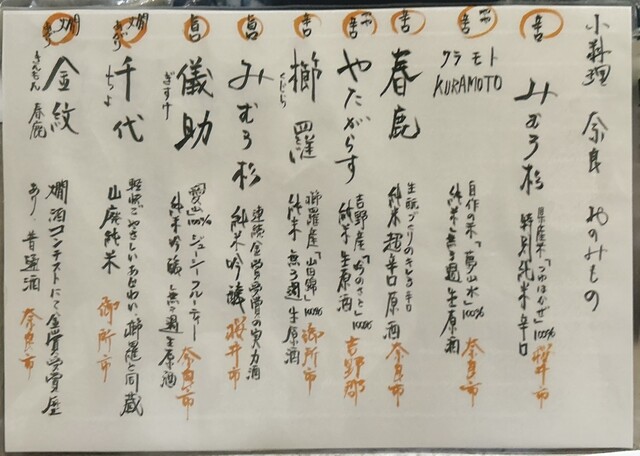 小料理 奈良 おのみもの
辛口
みむろ杉
県産米「つゆはかぜ」100%
特別純米 辛口
桜井市
辛口
クラモト
KURAMOTO
自作の米「夢山水」100%
純米 無ろ過 生原酒
奈良市
辛口
春鹿
生酛づくりのキレる辛口
純米超辛口原酒
奈良市
やたがらす
吉野産「吟のさと」100%
純米 生原酒
吉野郡
櫛羅
くじら
櫛羅産「山田錦」100%
純米 無ろ過 生原酒
御所市
みむろ杉
連続金賞受賞の実力酒
純米吟醸
桜井市
儀助
ぎすけ
愛山100% ジューシーフルーティー
純米吟醸 無ろ過 生原酒
奈良市
燗
千代
ちよ
軽快でやさしいあじわい、櫛羅と同蔵
山廃純米
御所市
燗
金紋
きんもん
春鹿
燗酒コンテストにて、金賞受賞歴
あり、普通酒
奈良市